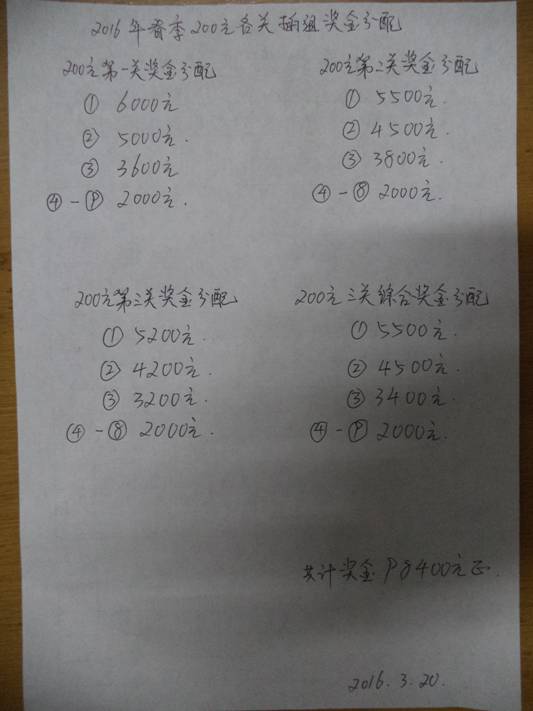 2016年春季200元各关插组奖金分配
200元第一关奖金分配
① 6000元
② 5000元.
③ 3600元
④-⑨ 2000元.
200元第二关奖金分配
① 5500元
② 4500元.
③ 3800元.
④-⑧ 2000元.
200元第三关奖金分配
① 5200元.
② 4200元.
③ 3200元.
④-⑧ 2000元.
200元三关综合奖金分配
① 5500元.
② 4500元.
③ 3400元.
④-⑨ 2000元.
共计奖金98400元正.
2016.3.20.